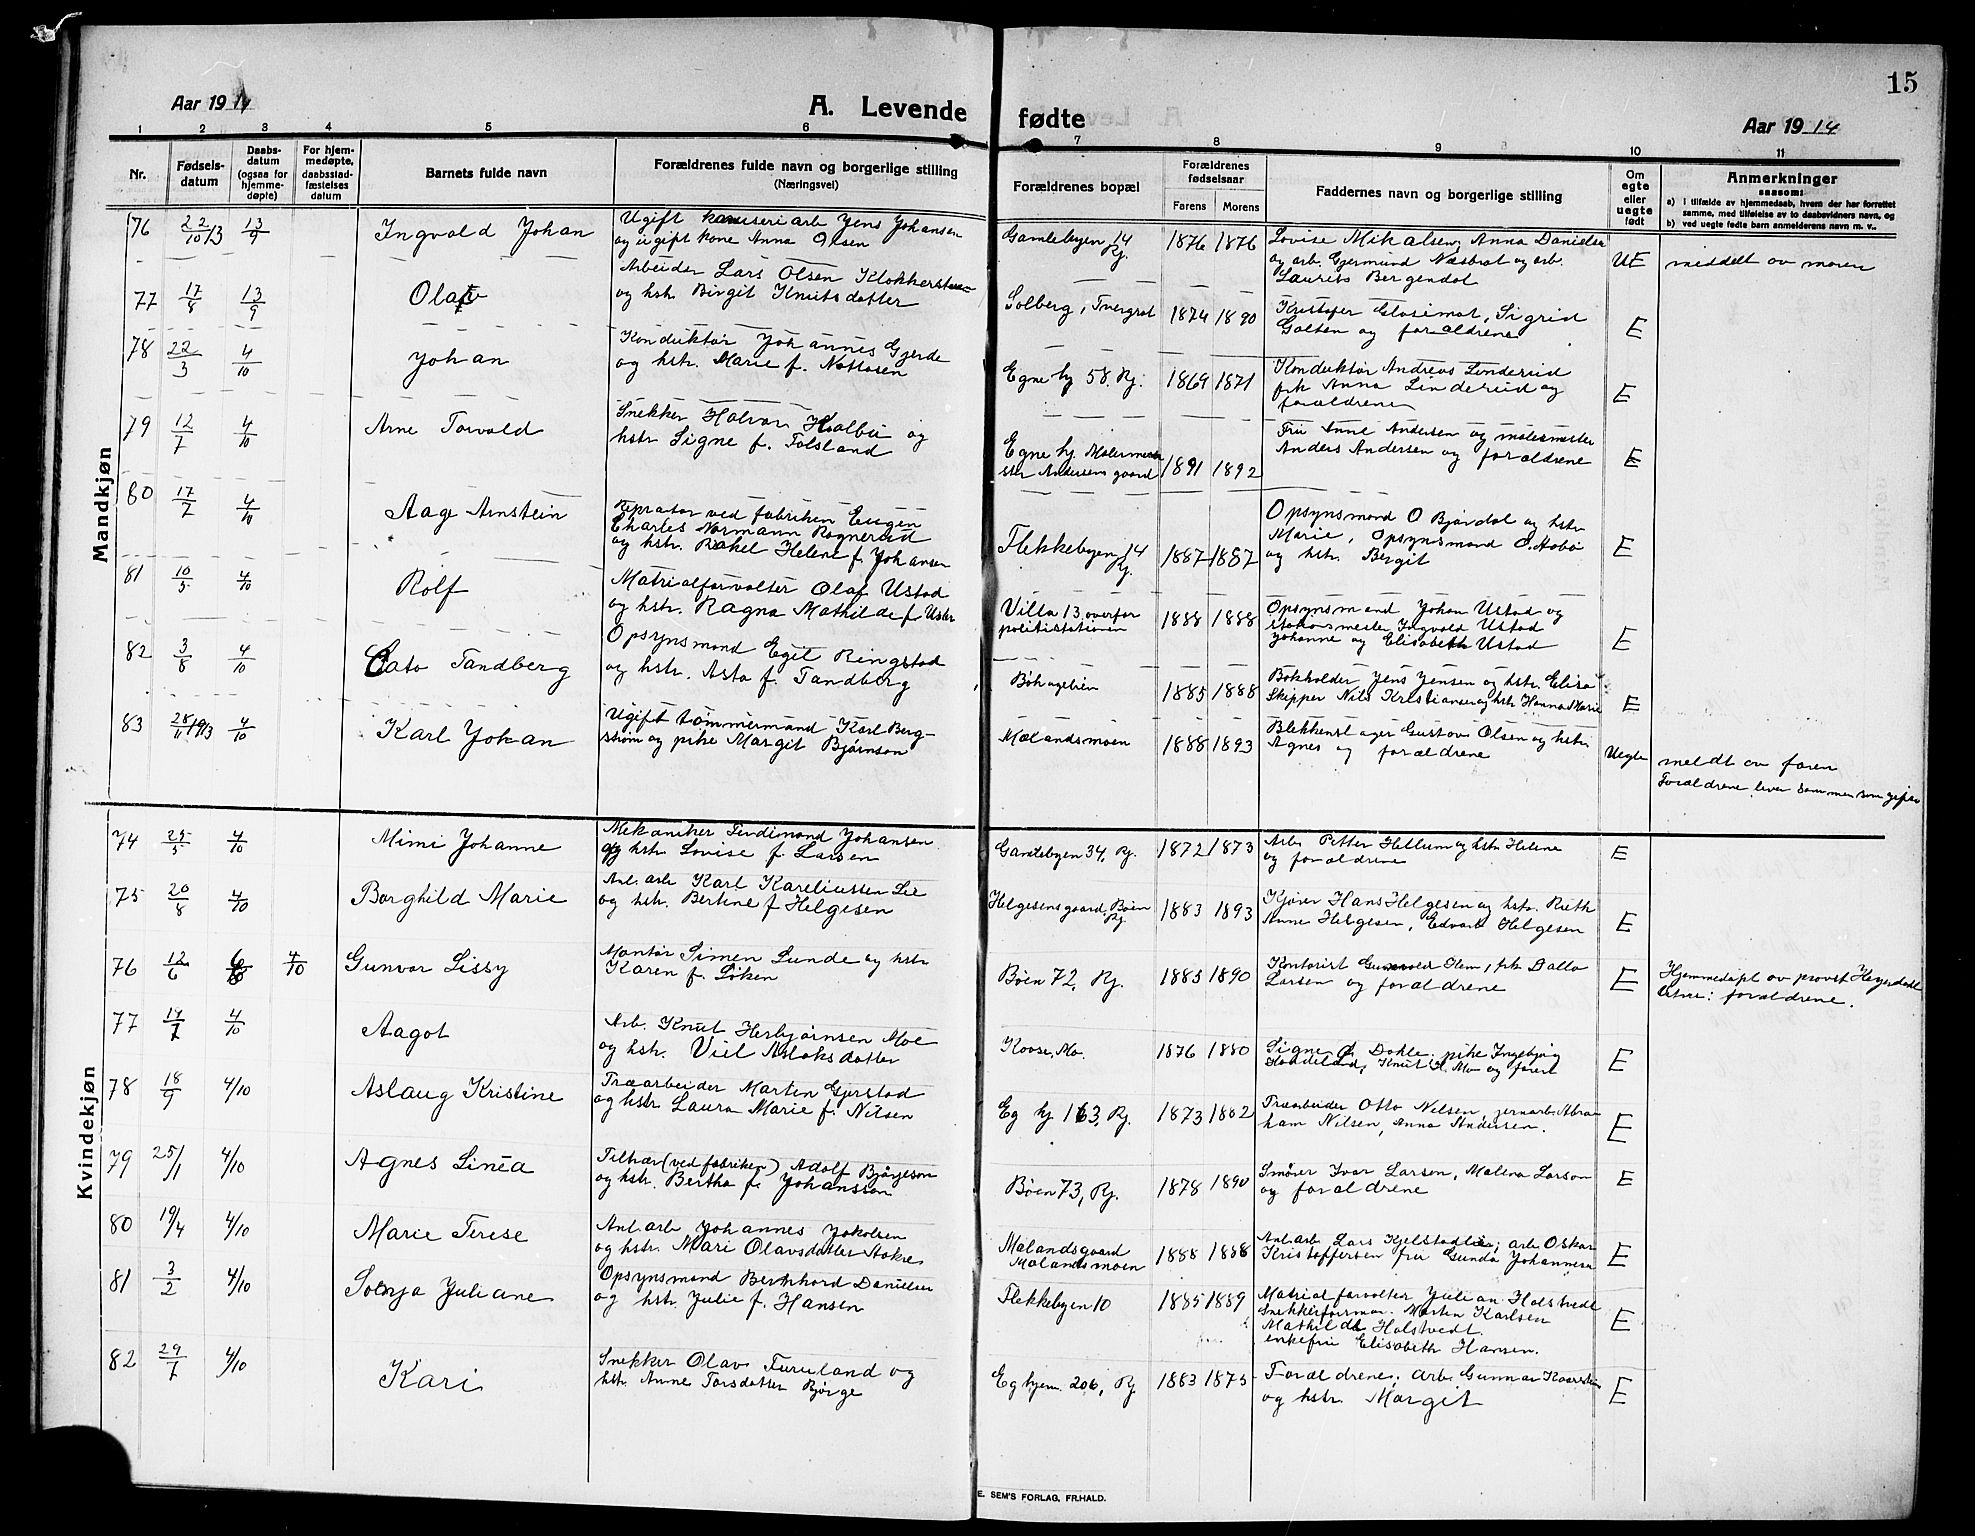 15
Aar 1914
A. Levende fødte
Aar 1914
1 2 3 4 5 6 7 8 9 10 11
Nr.
Fødsels-
datum
Daabs-
datum
(ogsaa for
hjemme-
døpte)
For hjem-
medøpte,
daabsstad-
fæstelses
datum
Barnets fulde navn
Forældrenes fulde navn og borgerlige stilling
(Næringsvei)
Forældrenes bopæl
Forældrenes
fødselsaar
Farens Morens
Faddernes navn og borgerlige stilling
Om
egte
eller
uegte
født
Anmerkninger
saasom:
a) i tilfælde av hjemmedaab, hvem der har forrettet
samme, med tilføielse av to daabsvidners navn, og
b) ved uegte fødte barn anmelderens navn m. v..
Mandkjøn
76 22/10 13 13/9 Ingvald Johan
Ugift arb Jens Johansen
og ugift kone Anna Olsen
Gamlebyen 14
Rj.
1876 1876
Lovise Mikalsen, Anna Danielsen
og arb. Gjermund Næsbrat og arb.
Laurits Bergendal
UE
meddelt av moren
77 17/8 13/9 Olav
Arbeider Lars Olsen
og hstr. Birgit Knutsdatter
Solberg, Tvergrot
1874 1890
Kristofer Gloseimot, Sigrid
Golsen og forældrene
E
78 22/3 4/10 Johan
Konduktør Johannes Gjerde
og hstr. Marie f. Nottosen
Egne hj 58. Rj.
1869 1871
Konduktør Andreas Linderud
frk Anna Linderud og
forældrene
E
79 12/7 4/10 Arne Torvald
Snekker Halvor Holbu og
hstr Signe f. Tolsland
Egne hj. Malerme-
ster Andersens gaard
1891 1892
Fru Anne Andersen og malermester
Anders Andersen og forældrene
E
80 17/7 4/10 Aage Arnstein
Reprator ved fabriken Eugen
Charles Normann Rognerud
og hstr. Rakel Helene f. Johansen
Flekkebyen 14
Rj.
1887 1887
Opsynsmand O Bjørdal og hstr
Marie, Opsynsmand O. Hobø
og hstr. Bergit
E
81 10/5 4/10 Rolf
Matrialforvalter Olaf Ustad
og hstr. Ragna Mathilde f. Uster
Villa 13, overfor
politistationen
1888 1888
Opsynsmand Johan Ustad og
stationsmester Ingvald Ustad
Johanne og Elisabeth Ustad
E
82 3/8 4/10 Cato Tandberg
Opsynsmand Egil Ringstad
og hstr. Asta f. Tandberg
Bøhagebien
1885 1888
Bokholder Jens Jensen og hstr. Elisa
Skipper Nils Kristiansen og hstr Hanna Marie
E
83 28/11 1913 4/10 Karl Johan
Ugift tømmermand Karl Berg-
strøm og pike Margit Bjørnson
Mælandsmoen
1888 1893
Blekkenslager Gustav Olsen og hstr
Agnes og forældrene
Uegte
meldt av faren
Forældrene lever sammen som gifte
Kvindekjøn
74 25/5 4/10 Mimi Johanne
Mekaniker Ferdinand Johansen
og hstr. Lovise f. Larsen
Gamlebyen 34, Rj.
1872 1873
Arb. Petter Hellum og hstr Helene
og forældrene
E
75 20/8 4/10 Borghild Marie
Anl. arb Karl Kareliussen Lie
og hstr. Bertine f Helgesen
Helgesens gaard, Bøen
Rj.
1883 1893
Kjører Hans Helgesen og hstr. Rieth
Anne Helgesen, Edvart Helgesen
E
76 12/6 4/10 Gunvor Lissy
Montør Simen Lunde og hstr
Karen f. Løken
Bøen 72, Rj.
1885 1890
Kontorist Gunvald Hem, frk Dalla
Larsen og forældrene
E
Hjemmedøpt av provst
forældrene.
77 14/7 4/10 Aagot
Arb. Knut Herbjørnsen Moe
og hstr. Viel Aslaksdatter
Kosse, Mo.
1876 1880
Signe Dokle, pike Ingebjørg
Knut H. Mo og foræl
E
78 18/9 4/10 Aslaug Kristine
Træarbeider Marten Gjerstad
og hstr Laura Marie f. Nilsen
Eg hj 163, Rj.
1873 1882
Træarbeider Otto Nilsen, jernarb. Abra-
ham Nilsen, Anna Andersen.
E
79 25/1 4/10 Agnes Linéa
Tilhær (ved fabriken) Adolf Bjørgeson
og hstr. Bertha f. Johansson
Bøen 73, Rj.
1878 1890
Smører Ivar Larsen, Malena Larson
og forældrene
E
80 19/4 4/10 Marie Terese
Anl. arb Johannes Jakobsen
og hstr. Mari Olavsdatter Aakre
Mælandsgaard
Mælandsmoen
1888 1888
Anl. arb Lars Kjelstadlie, arb Oskar
Kristoffersen fru Gunda Johannesen
E
81 3/2 4/10 Solvja Juliane
Opsynsmand Bernhard Danielsen
og hstr. Julie f. Hansen
Flekkebyen 10
1885 1889
Matrialforvalter Julian Holstvedt
Snekkerforman. Morten Karlsen
Mathilde Holstvedt.
enkefru Elisabeth Hansen.
E
82 29/7 4/10 Kari
Snekker Olav Furuland og
hstr. Anne Torsdatter Bjørge
Eg hjem. 206, Rj
1883 1875
Forældrene, arb. Gunnar
og hstr. Margit
E
E. SEM'S FORLAG, FR.HALD.